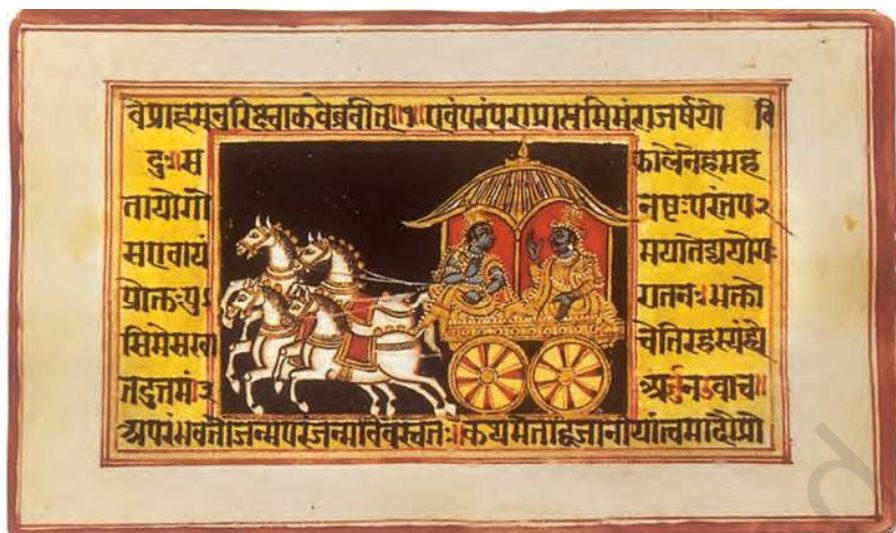 वेप्राहमनुरिक्ष्वाकवेब्रवीत्॥१॥एवंपरंपराप्राप्तमिमंराजर्षयो वि
दुः॥स कालेनेहमह
तायोगो नष्टःपरंतप२
सएवायं मयातेद्ययोगः
प्रोक्तःपु रातनः॥भक्तो
सिमेसखा चेतिरहस्यंह्ये
तदुत्तमं३ अर्जुनउवाच॥
अपरंभवतोजन्मपरंजन्मविवस्वतः॥कथमेतद्विजानीयांत्वमादौप्रो